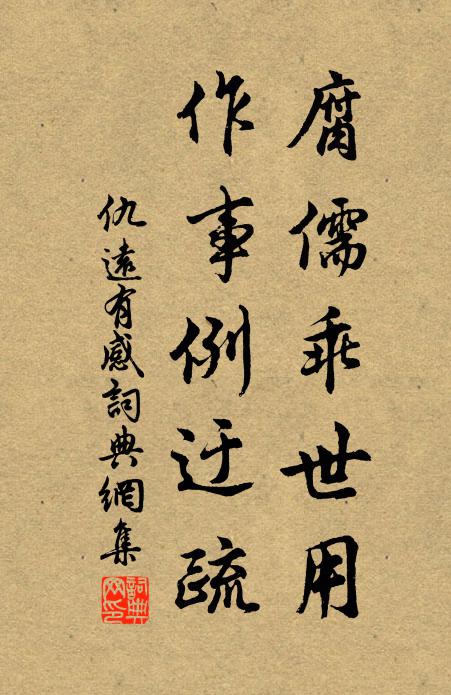 腐儒乖世用
作事例迂疏
仇遠有感詞典網集
詞典網印